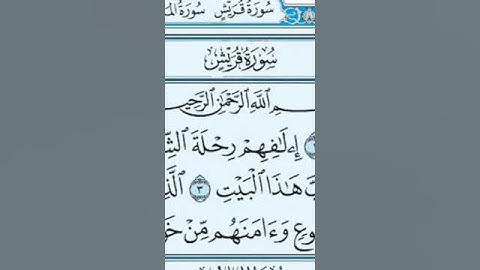 سُورَةُ قُرَيْشٍ سُورَةُ المَا
سُورَةُ قُرَيْشٍ
ـمِ ٱللَّهِ ٱلرَّحْمَٰنِ ٱلرَّحِيـ
إِۦلَٰفِهِمْ رِحْلَةَ ٱلشِّـ
ـبَّ هَٰذَا ٱلْبَيْتِ ٣ ٱلَّذِ
ـوعٍ وَءَامَنَهُم مِّنْ خَوْ